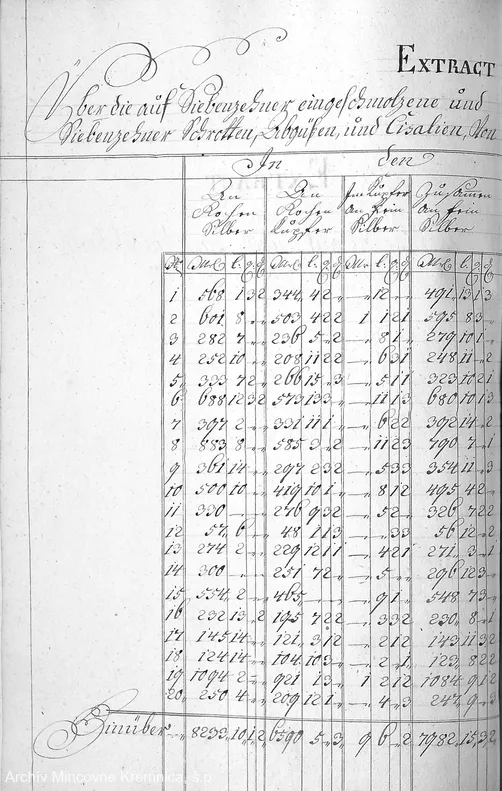 EXTRACT
Über die auf Siebenzehner eingeschmolzene und
Siebenzehner Schrotten, Abgüßen, und Cisalien, Von
In den
An Rochen Silber An Rochen Kupfer Im Kupfer An Fein Silber Zusammen An fein Silber
1 568 1 3 2 344 4 2 12 491 13 1 3
2 601 8 503 4 2 2 1 1 2 1 595 8 3
3 282 7 236 5 2 8 1 279 10 1
4 252 10 208 11 2 2 6 3 1 248 11 2
5 333 7 2 266 15 3 5 1 1 323 10 2 1
6 688 12 3 2 573 13 3 11 1 3 680 10 1 3
7 397 2 331 11 1 6 2 2 392 14 2
8 883 8 585 3 2 11 2 3 790 7 1
9 361 14 297 2 3 2 5 3 3 354 11 3
10 500 10 419 10 1 8 1 2 495 4 2
11 330 276 9 3 2 5 2 326 7 2 2
12 57 6 48 11 3 3 3 56 12 2
13 274 2 229 12 1 1 4 2 1 271 3 1
14 300 251 7 2 5 296 12 3
15 554 2 465 9 1 548 7 3
16 232 13 2 195 7 2 2 3 3 2 230 8 1
17 145 14 121 3 1 2 2 1 2 143 11 3 2
18 124 14 104 10 3 2 1 123 8 2 2
19 1094 2 921 13 1 2 1 2 1084 9 1 2
20 250 4 209 12 1 4 3 247 9 2
Hinüber 8233 10 1 2 6590 5 3 9 6 2 7982 15 3 2
Archív Mincovne Kremnica, š.p.